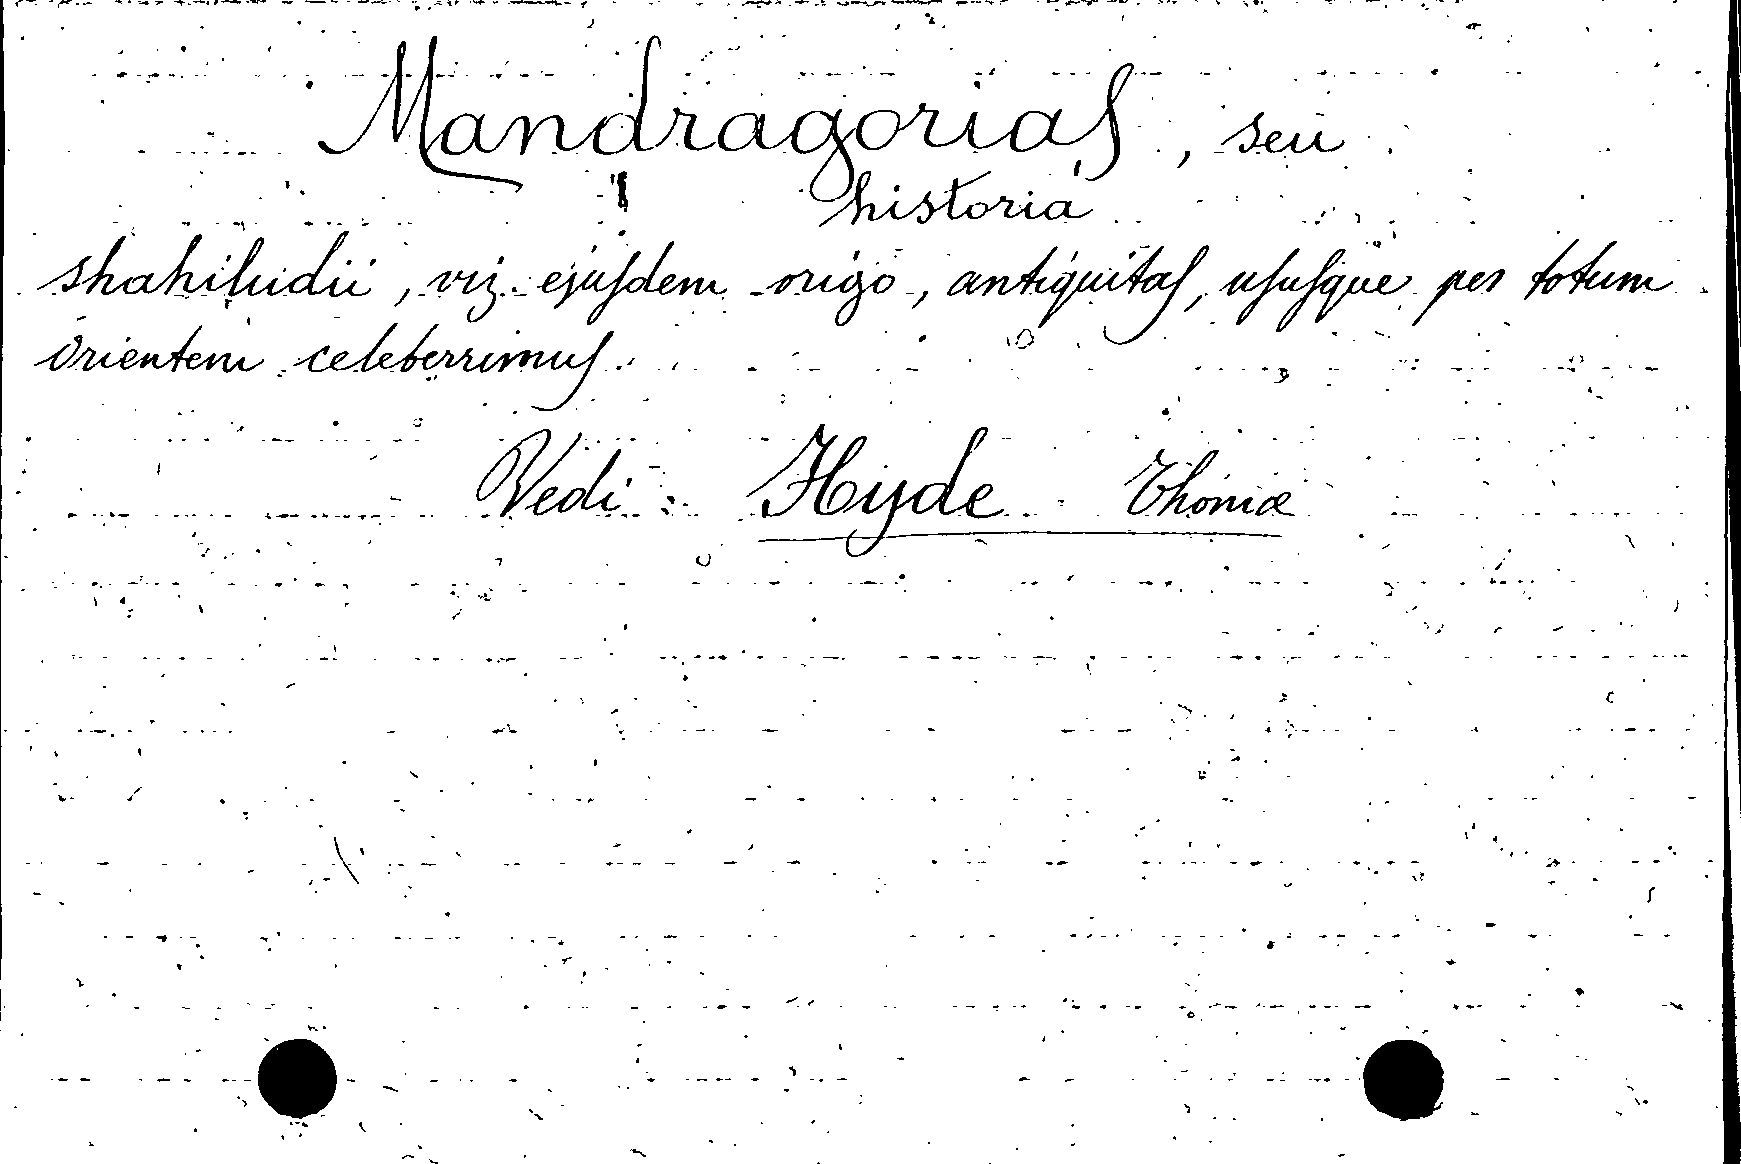 Mandragorias, seu
historia
shahiludii, viz. ejusdem origo, antiquitas, ususque per totum
orientem celeberrimus.
Vedi: Hyde Thomæ